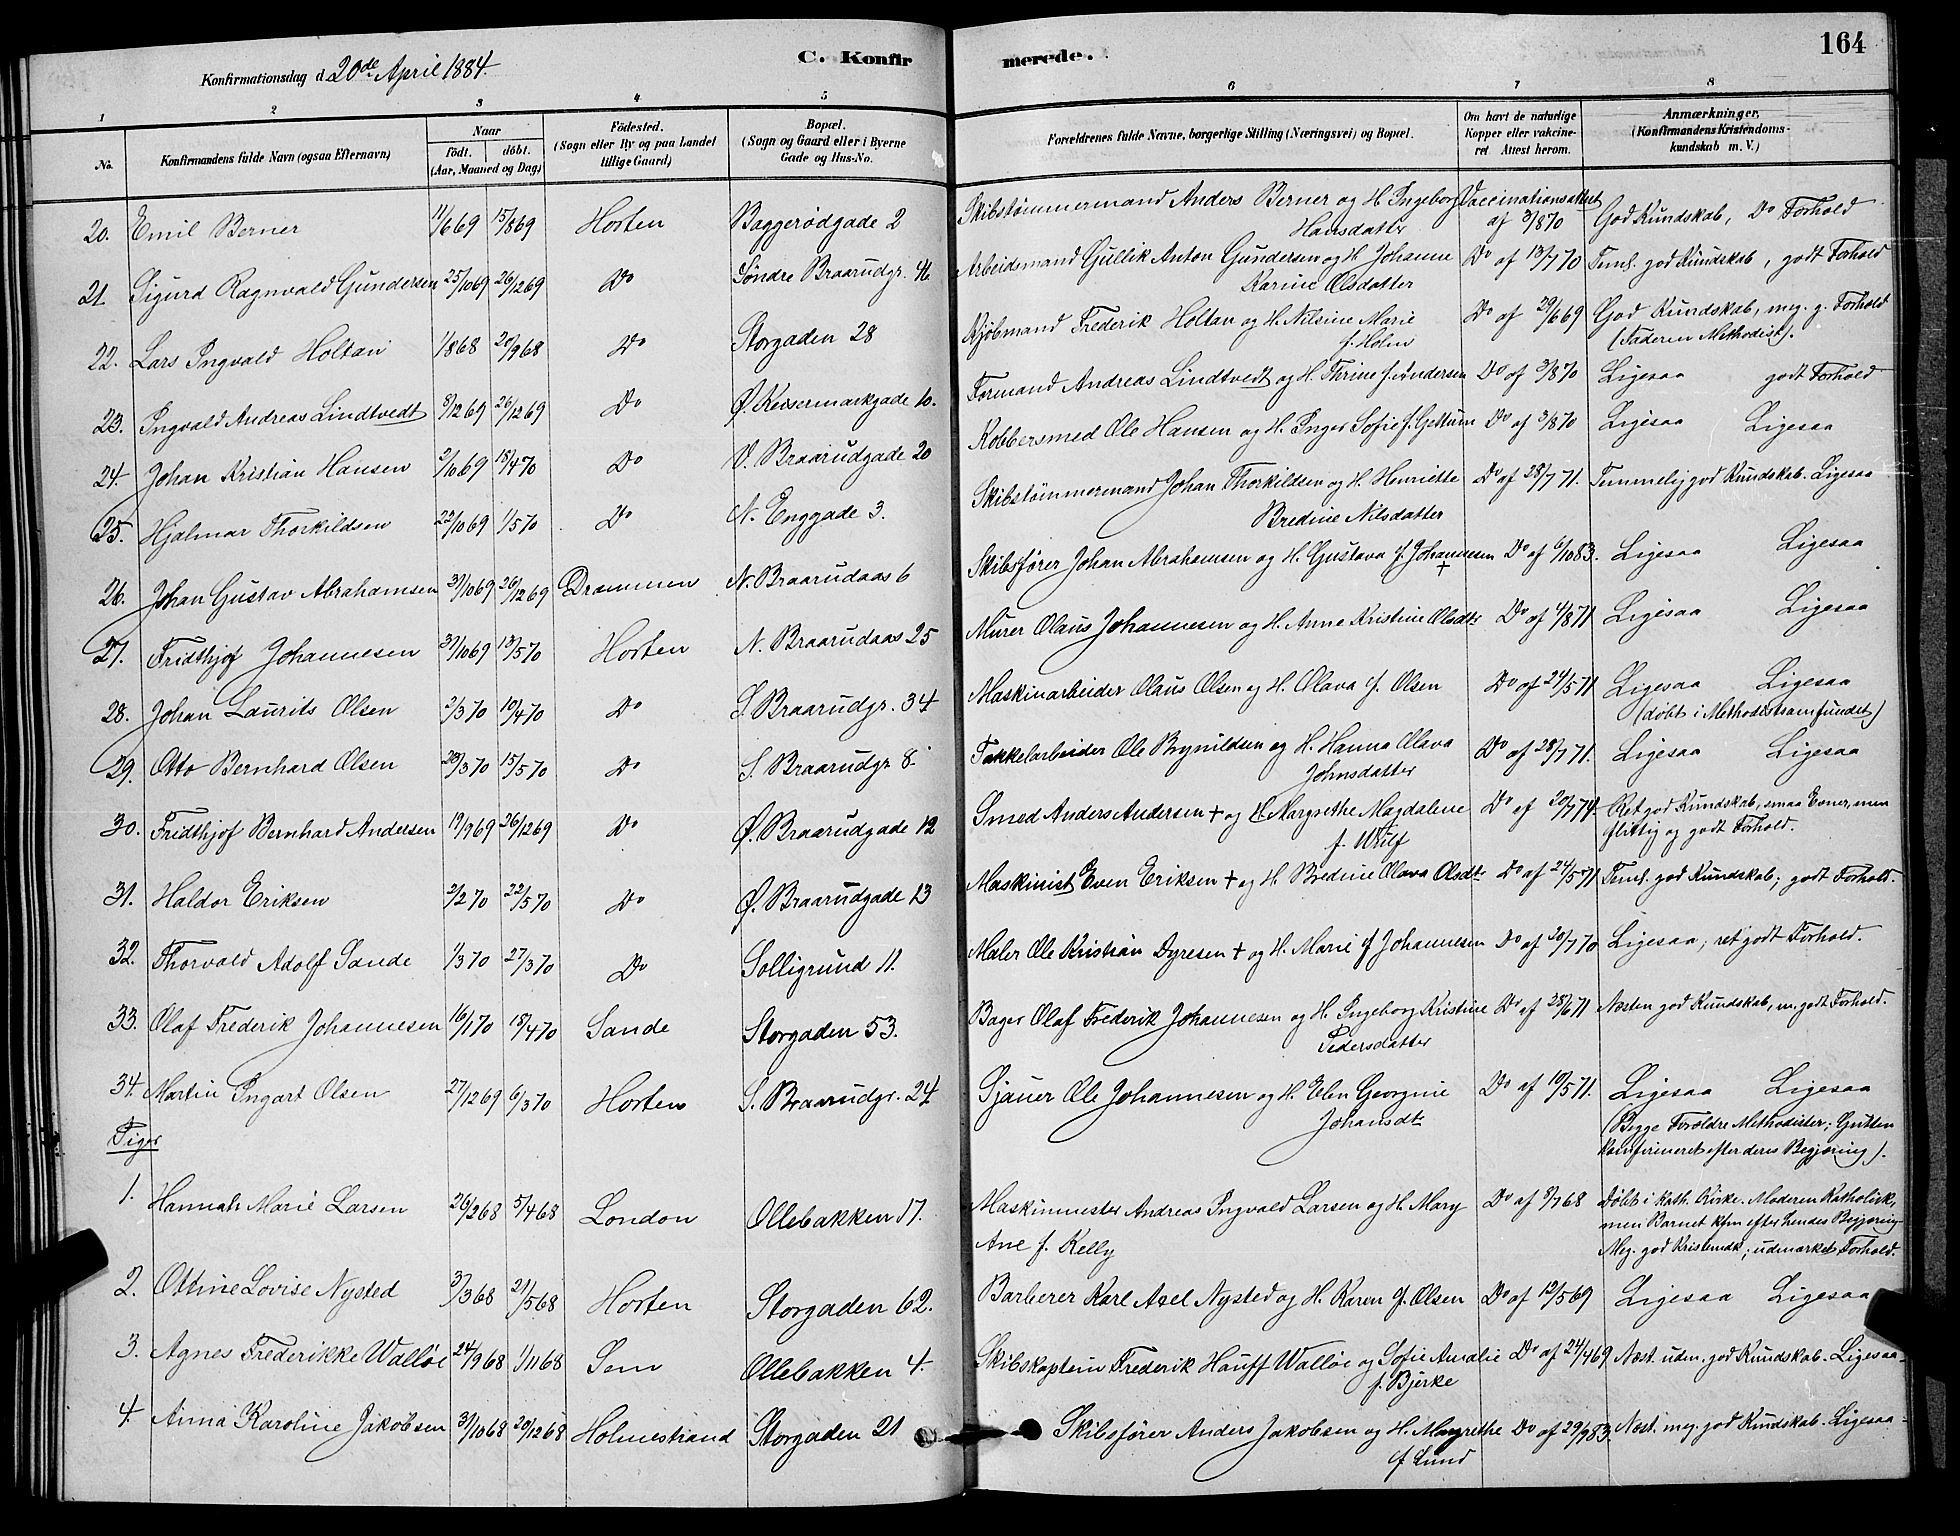 164
C. Konfirmerede.
Konfirmationsdag d. 20de April 1884.
1 2 3 4 5 6 7 8
No. Konfirmandens fulde Navn (ogsaa Efternavn) Naar født. døbt. (Aar, Maaned og Dag) Fødested. (Sogn eller By og paa Landet tillige Gaard) Bopæl. (Sogn og Gaard eller i Byerne Gade og Hus-No. Forældrenes fulde Navne, borgerlige Stilling (Næringsvei) og Bopæl. Om havt de naturlige Kopper eller vakcineret Attest herom. Anmærkninger. (Konfirmandens Kristendomskundskab m. V.)
20. Emil Berner 11/6 69 15/8 69 Horten Baggerødgade 2 Skibstømmermand Anders Berner og H. Ingeborg Hansdatter Vaccinationsattest af 3/8 70 God Kundskab, Do Forhold
21. Sigurd Ragnvald Gundersen 25/10 69 26/12 69 Do Søndre Braarudgr. 46 Arbeidsmand Gullik Anton Gundersen og H. Johanne Karine Olsdatter Do af 13/7 70 Teml. god Kundskab, godt Forhold
22. Lars Ingvald Holtan 1/8 68 20/9 68 Do Storgaden 28 Kjøbmand Frederik Holtan og H. Nilsine Marie f. Holm Do af 29/6 69 God Kundskab, meg. g. Forhold (Faderen Methodist).
23. Ingvald Andreas Lindtvedt 8/12 69 26/12 69 Do Ø. Keisermarkgade 10. Formand Andreas Lindtvedt og H. Thrine f. Andersen Do af 3/8 70 Ligesaa godt Forhold
24. Johan Kristian Hansen 2/10 69 18/4 70 Do V. Braarudgade 20 Kobbersmed Ole Hansen og H. Inger Sofie f. Gjettum Do af 3/8 70 Ligesaa Ligesaa
25. Hjalmar Thorkildsen 22/10 69 1/5 70 Do N. Enggade 3. Skibstømmermand Johan Thorkildsen og H. Henriette Bredine Nilsdatter Do af 28/7 71. Temmelig god Kundskab. Ligesaa
26. Johan Gustav Abrahamsen 31/10 69 26/12 69 Drammen N. Braarudaas 6 Skibsfører Johan Abrahamsen og H. Gustava f. Johannesen + Do af 6/10 83. Ligesaa Ligesaa
27. Fridthjof Johannesen 31/10 69 13/5 70 Horten N. Braarudaas 25 Murer Olaus Johannesen og H. Anne Kristine Olsdtr Do af 4/8 71 Ligesaa Ligesaa
28. Johan Laurits Olsen 2/3 70 10/4 70 Do S. Braarudgr. 34 Maskinarbeider Olaus Olsen og H. Olava f. Olsen Do af 24/5 71 Ligesaa Ligesaa (døbt i Methodistsamfundet)
29. Otto Bernhard Olsen 23/3 70 15/5 70 Do S. Braarudgr. 8. Takkelarbeider Ole Brynildsen og H. Hanna Olava Johnsdatter Do af 28/7 71. Ligesaa Ligesaa
30. Fridthjof Bernhard Andersen 19/9 69 26/12 69 Do Ø. Braarudgade 12 Smed Anders Andersen + og H. Margrethe Magdalene f. Wulf Do af 20/7 74. Ret god Kundskab, smaa Evner, men flittig og godt Forhold.
31. Haldor Eriksen 2/2 70 22/5 70 Do Ø. Braarudgade 13 Maskinist Even Eriksen + og H. Bredine Olava Olsdtr Do af 24/5 71 Teml. god Kundskab, godt Forhold.
32. Thorvald Adolf Sande 1/3 70 27/3 70 Do Solligrund 11. Maler Ole Kristian Dyresen + og H. Marie f. Johannesen Do af 20/7 70 Ligesaa, ret godt Forhold.
33. Olaf Frederik Johannesen 16/1 70 18/4 70 Sande Storgaden 53. Bager Olaf Frederik Johannesen og H. Ingeborg Kristine Pedersdatter Do af 28/6 71 Næsten god Kundskab, m. godt Forhold.
34. Martin Ingart Olsen 27/12 69 6/3 70 Horten S. Braarudgr. 24. Sjauer Ole Johannesen og H. Elen Georgine Johansdt. Do af 19/5 71. Ligesaa Ligesaa (Begge Forældre Methodister; Gutten konfirmeret efter deres Begjæring).
Piger
1. Hannah Marie Larsen 26/2 68 5/4 68 London Ollebakken 17. Maskinmester Andreas Ingvald Larsen og H. Mary Ane f. Kelly Do af 8/7 68 Døbt i kath. Kirke. Moderen Katholik, men Barnet kfm efter hendes Begjæring. Meg. god Kristendk; udmærket Forhold.
2. Ottine Lovise Nysted 3/3 68 21/5 68 Horten Storgaden 62. Barberer Karl Axel Nysted og H. Karen f. Olsen Do af 12/5 69 Ligesaa Ligesaa
3. Agnes Frederikke Walløe 24/9 68 1/11 68 Sem Ollebakken 4. Skibskaptein Frederik Hauff Walløe og Sofie Amalie f. Bjerke Do af 24/4 69 Næst. udm. god Kundskab. Ligesaa
4. Anna Karoline Jakobsen 31/10 68 20/12 68 Holmestrand Storgaden 21 Skibsfører Anders Jakobsen og H. Margrethe f. Lund Do af 29/9 83. Næst. meg. god Kundskab. Ligesaa